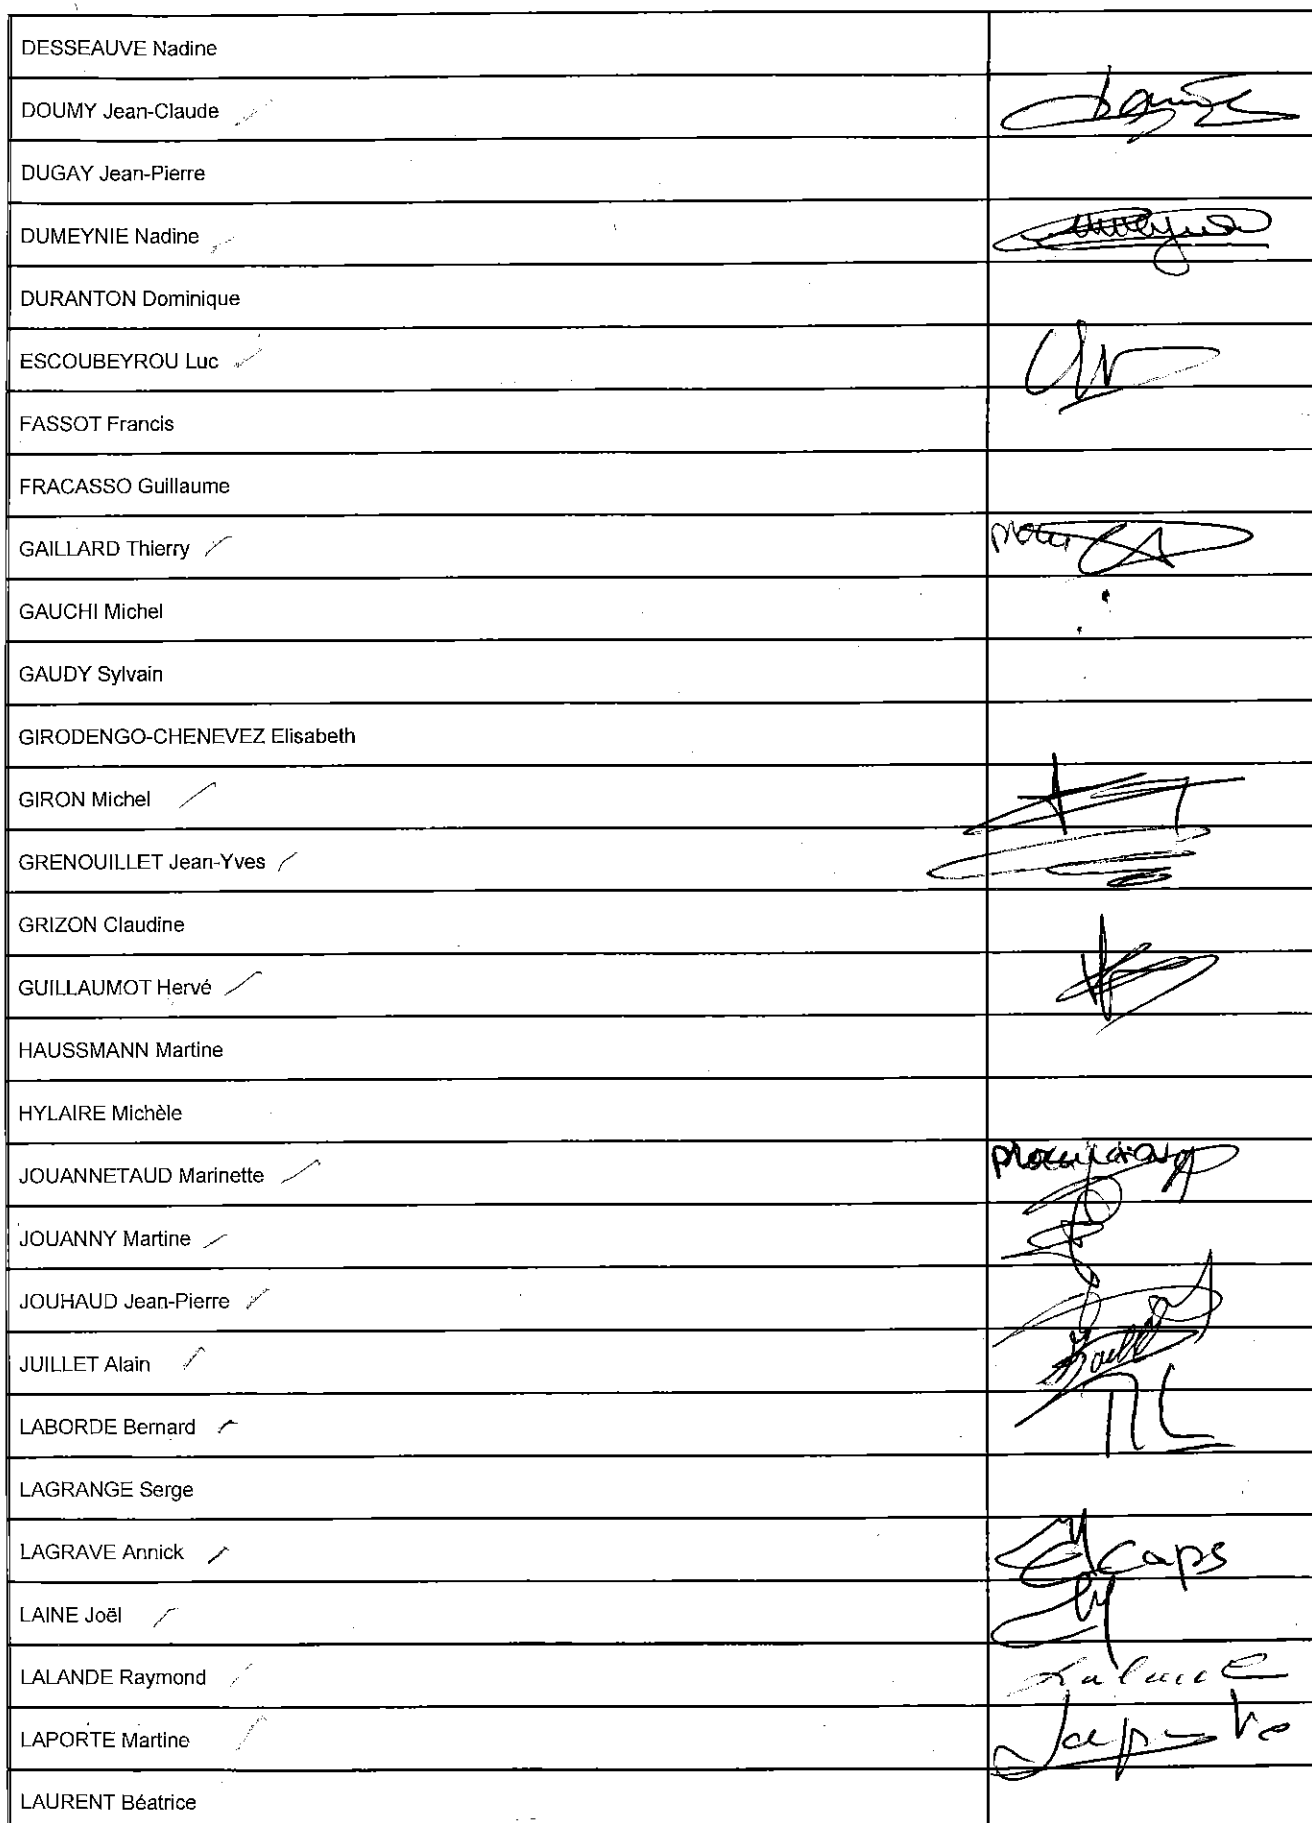 DESSEAUVE Nadine
DOUMY Jean-Claude
DUGAY Jean-Pierre
DUMEYNIE Nadine
DURANTON Dominique
ESCOUBEYROU Luc
FASSOT Francis
FRACASSO Guillaume
GAILLARD Thierry
GAUCHI Michel
GAUDY Sylvain
GIRODENGO-CHENEVEZ Elisabeth
GIRON Michel
GRENOUILLET Jean-Yves
GRIZON Claudine
GUILLAUMOT Hervé
HAUSSMANN Martine
HYLAIRE Michèle
JOUANNETAUD Marinette
JOUANNY Martine
JOUHAUD Jean-Pierre
JUILLET Alain
LABORDE Bernard
LAGRANGE Serge
LAGRAVE Annick caps
LAINE Joël
LALANDE Raymond
LAPORTE Martine Laporte
LAURENT Béatrice